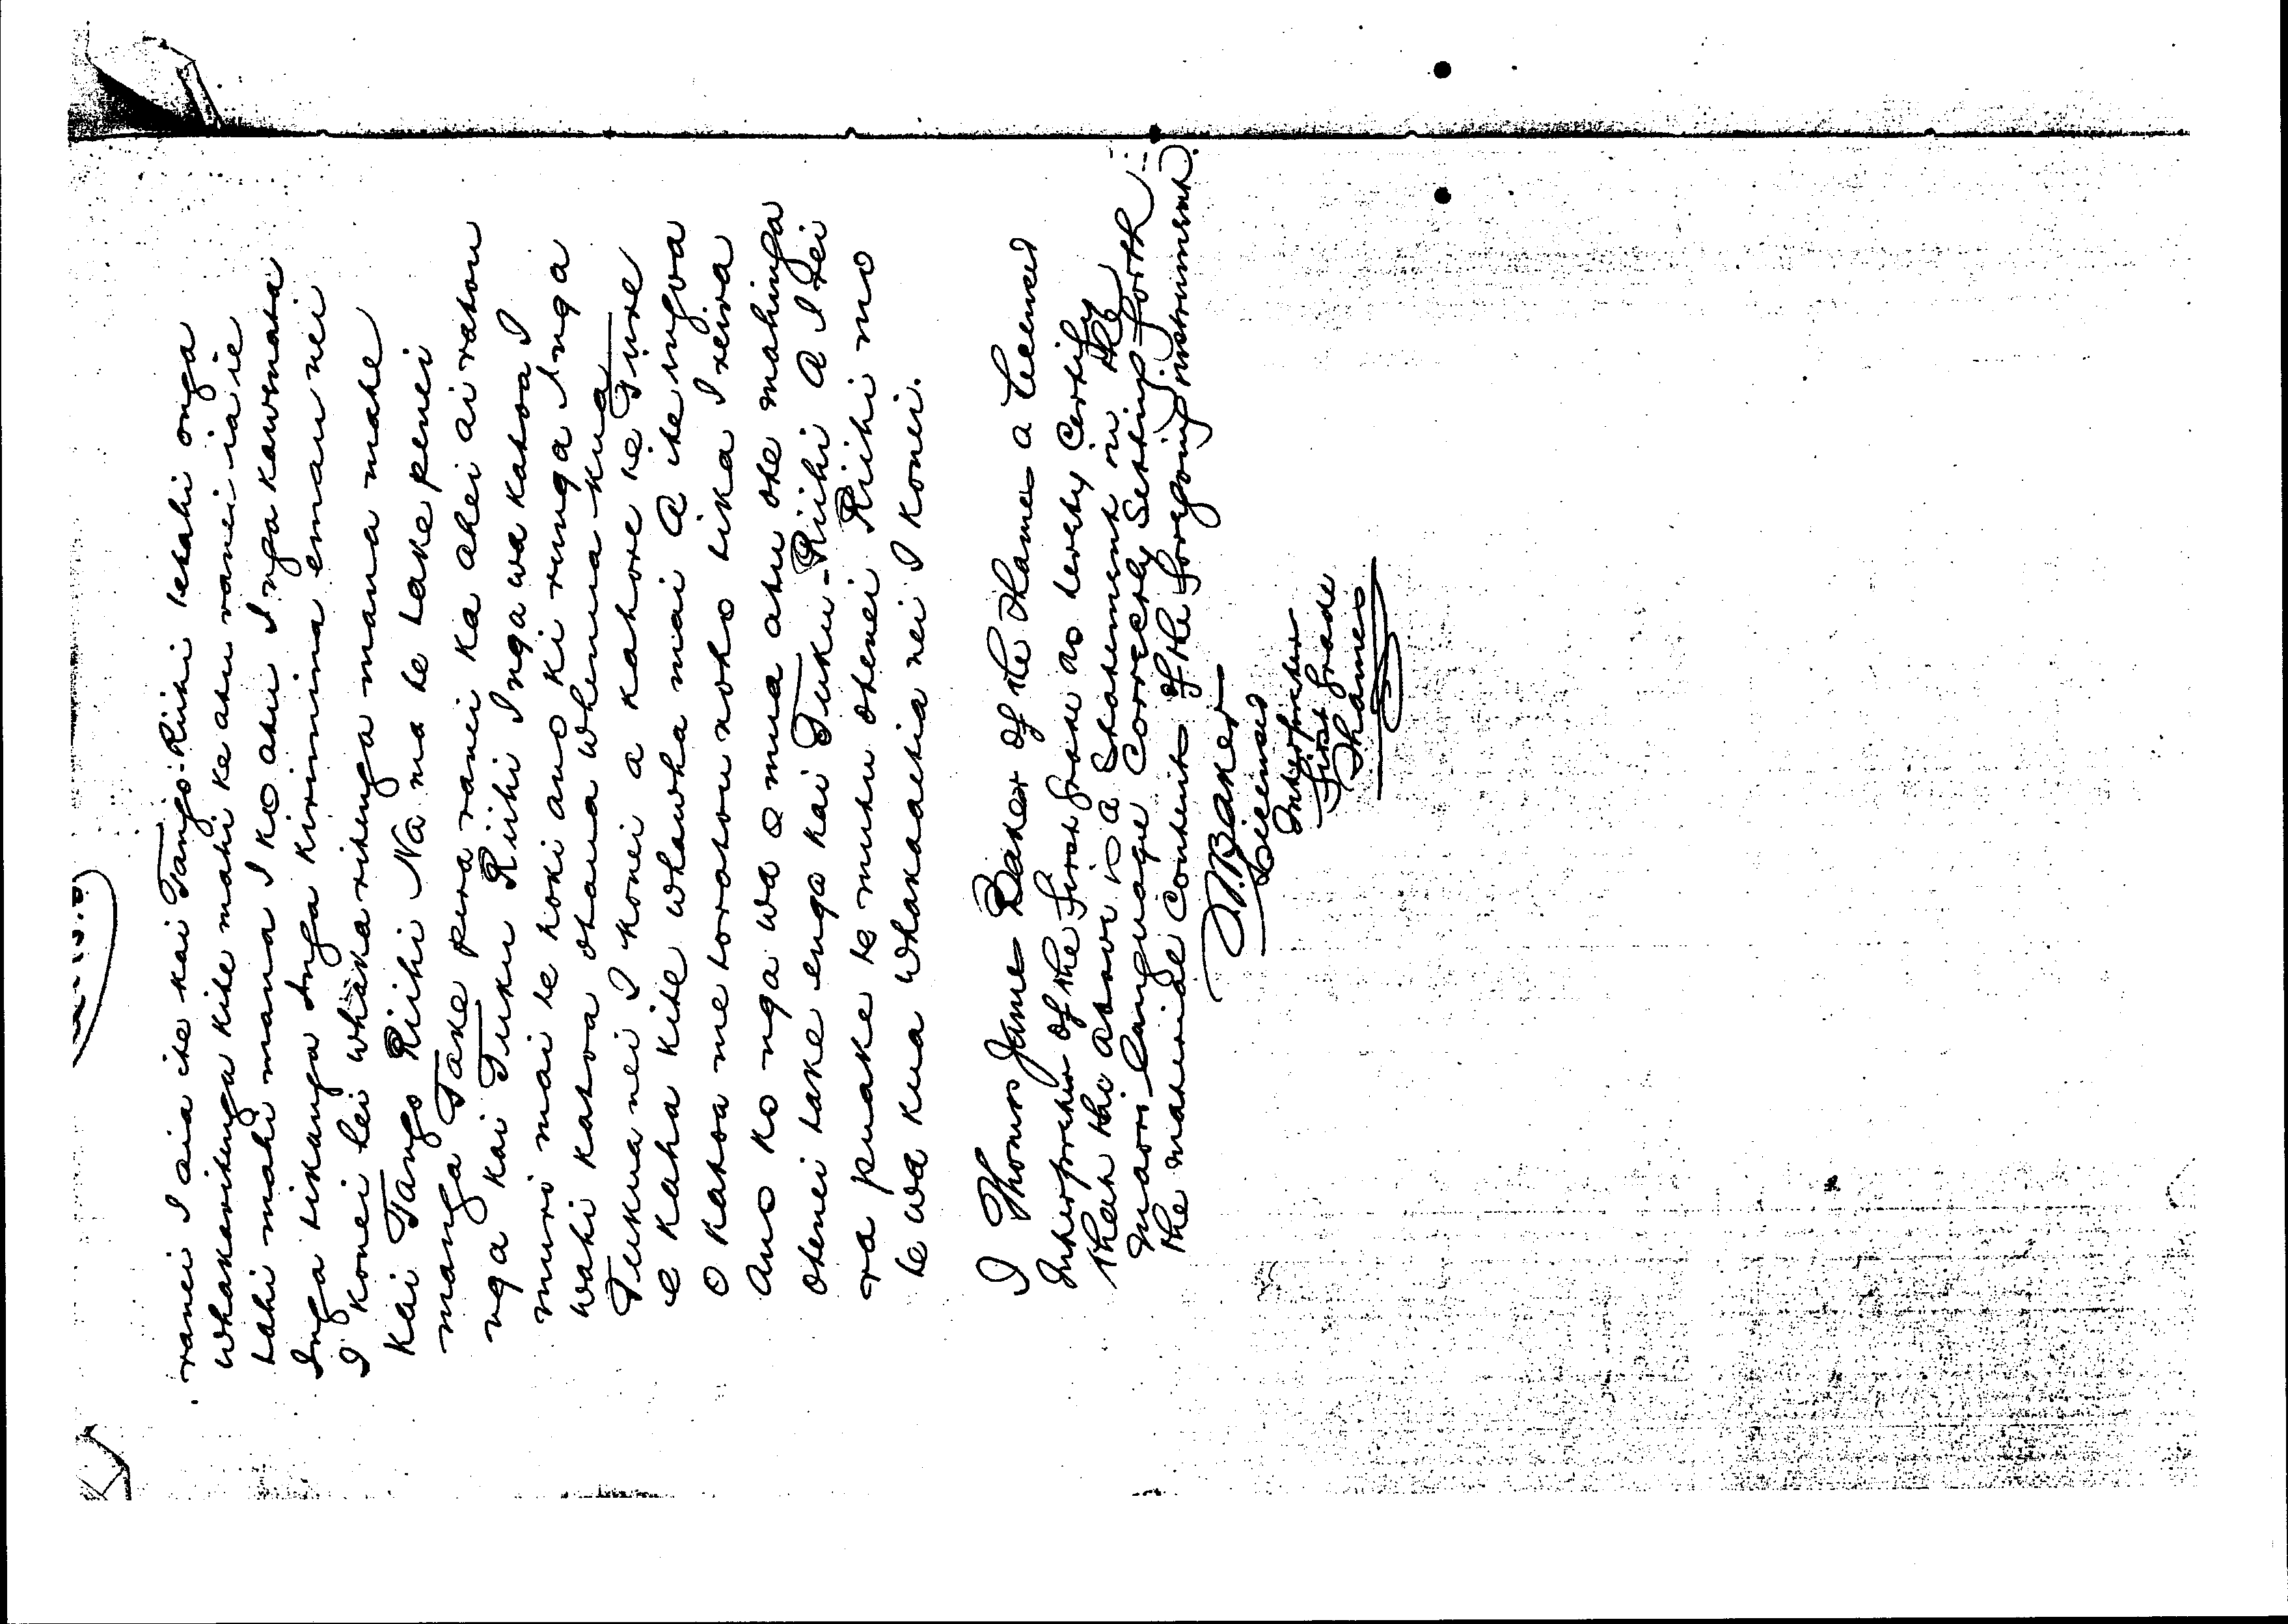 ranei I aia ite kai Tango-Riihi tetahi onga
whakaritenga kite mahi ke atu ranei ia ie
tahi mahi mana I ko atu I nga kawenata
Inga tikanga Inga kirimina emau nei
I konei hei whakaritenga mana mate
Kai Tango Riihi Na ma te take penei
manga Take pera ranei ka ahei ai ratou
nga kai Tuku Riihi I nga wa katoa I
muri mai te hoki ano ki runga Inga
wahi katoa otaua whenua kua
Tukua nei I konei a kahore he Ture
e kaha kite whawha mai a ite ingoa
o katoa me toratou noho tika I reira
Ano ko nga wa o mua atu ote mahinga
otenei take enga kai Tuku-Riihi a I tei
ra puake te mutu otenei Riihi mo
te wa kua whakaetia nei I konei.
I Thomas James Baker of the Thames a Licensed
Interpreter of the First Grade do hereby Certify
that the above is a Statement in the
Maori Language Correctly Setting forth
the material Contents of the foregoing instrument.
T.J. Baker
Licensed
Interpreter
First Grade
Thames